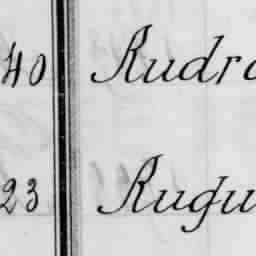 40 Rudro
23 Rugu